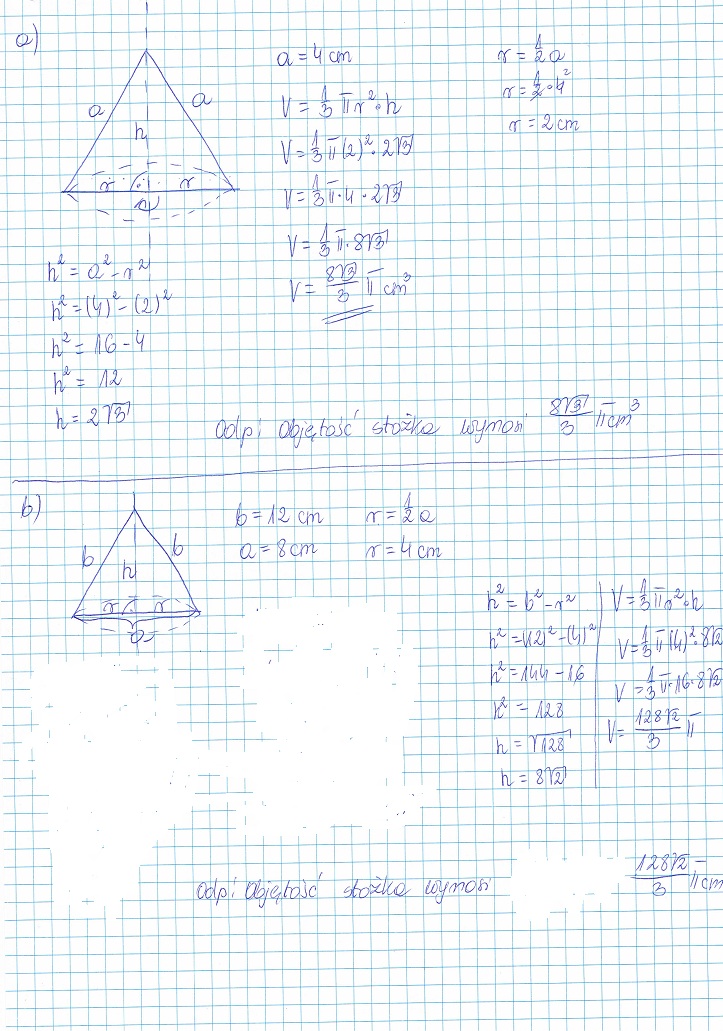 a)
a
a
h
r
r
a
a = 4 cm
V = 1/3 π r² · h
V = 1/3 π (2)² · 2√3
V = 1/3 π · 4 · 2√3
V = 1/3 π · 8√3
V = 8√3/3 π cm³
r = 1/2 a
r = 1/2 · 4²
r = 2 cm
h² = a² - r²
h² = (4)² - (2)²
h² = 16 - 4
h² = 12
h = 2√3
Odp: Objętość stożka wynosi 8√3/3 π cm³
b)
b
b
h
r
r
a
b = 12 cm
a = 8 cm
r = 1/2 a
r = 4 cm
h² = b² - r²
h² = (12)² - (4)²
h² = 144 - 16
h² = 128
h = √128
h = 8√2
V = 1/3 π r² · h
V = 1/3 π (4)² · 8√2
V = 1/3 π · 16 · 8√2
V = 128√2/3 π
Odp: Objętość stożka wynosi 128√2/3 π cm